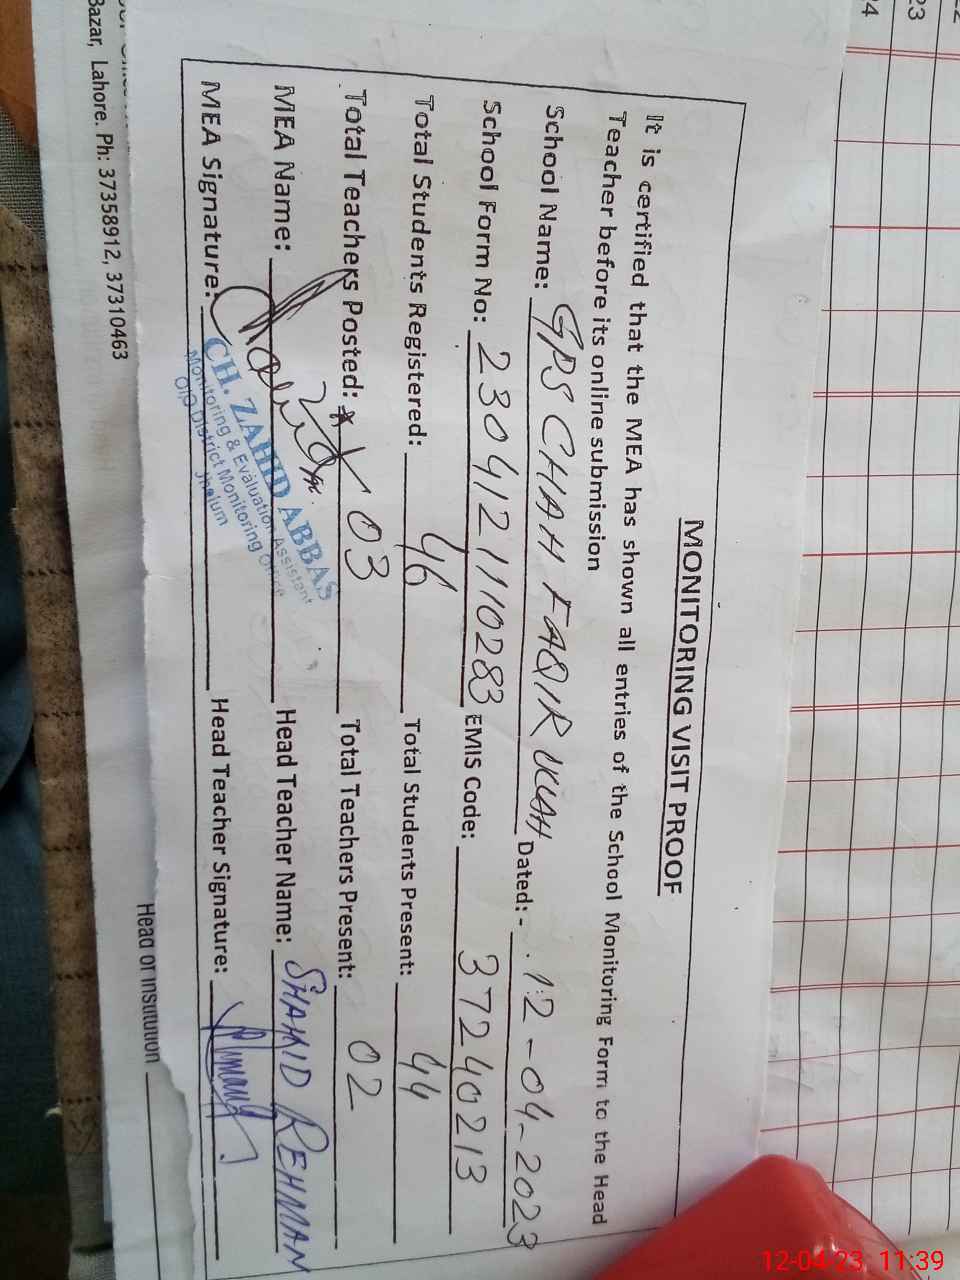 MONITORING VISIT PROOF
It is certified that the MEA has shown all entries of the School Monitoring Form to the Head
Teacher before its online submission
School Name: GPS CHAH FAQIR ULLAH Dated: - 12-04-2023
School Form No: 23041211110283 EMIS Code: 37240213
Total Students Registered: 46 Total Students Present: 44
Total Teachers Posted: 03 Total Teachers Present: 02
MEA Name: Head Teacher Name: SHAHID REHMAN
MEA Signature: Head Teacher Signature:
CH. ZAHID ABBAS
Monitoring & Evaluation Assistant
O/o District Monitoring Office
Jhelum
Head of Institution
Bazar, Lahore. Ph: 37358912, 37310463
23
12-04-23, 11:39